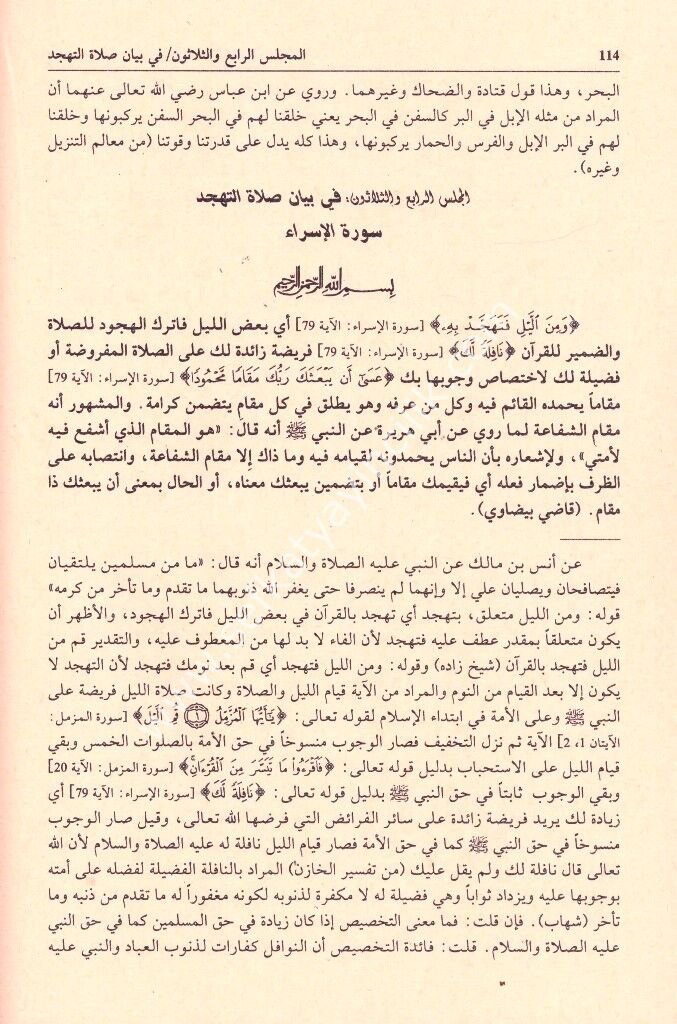 114 المجلس الرابع والثلاثون/ في بيان صلاة التهجد
البحر، وهذا قول قتادة والضحاك وغيرهما. وروي عن ابن عباس رضي الله تعالى عنهما أن
المراد من مثله الإبل في البر كالسفن في البحر يعني خلقنا لهم في البحر السفن يركبونها وخلقنا
لهم في البر الإبل والفرس والحمار يركبونها، وهذا كله يدل على قدرتنا وقوتنا (من معالم التنزيل
وغيره).
المجلس الرابع والثلاثون: في بيان صلاة التهجد
سورة الإسراء
بسم الله الرحمن الرحيم
﴿وَمِنَ الَّيْلِ فَتَهَجَّدْ بِهِۦ﴾ [سورة الإسراء: الآية 79] أي بعض الليل فاترك الهجود للصلاة
والضمير للقرآن ﴿نَافِلَةً لَّكَ﴾ [سورة الإسراء: الآية 79] فريضة زائدة لك على الصلاة المفروضة أو
فضيلة لك لاختصاص وجوبها بك ﴿عَسَىٰٓ أَن يَبْعَثَكَ رَبُّكَ مَقَامًا مَّحْمُودًا﴾ [سورة الإسراء: الآية 79]
مقاماً يحمده القائم فيه وكل من عرفه وهو يطلق في كل مقام يتضمن كرامة. والمشهور أنه
مقام الشفاعة لما روي عن أبي هريرة عن النبي ﷺ أنه قال: «هو المقام الذي أشفع فيه
لأمتي»، ولإشعاره بأن الناس يحمدونه لقيامه فيه وما ذاك إلا مقام الشفاعة، وانتصابه على
الظرف بإضمار فعله أي فيقيمك مقاماً أو بتضمين يبعثك معناه، أو الحال بمعنى أن يبعثك ذا
مقام. (قاضي بيضاوي).
عن أنس بن مالك عن النبي عليه الصلاة والسلام أنه قال: «ما من مسلمين يلتقيان
فيتصافحان ويصليان علي إلا وإنهما لم ينصرفا حتى يغفر الله ذنوبهما ما تقدم وما تأخر من كرمه»
قوله: ومن الليل متعلق، بتهجد أي تهجد بالقرآن في بعض الليل فاترك الهجود، والأظهر أن
يكون متعلقاً بمقدر عطف عليه فتهجد لأن الفاء لا بد لها من المعطوف عليه، والتقدير قم من
الليل فتهجد بالقرآن (شيخ زاده) وقوله: ومن الليل فتهجد أي قم بعد نومك فتهجد لأن التهجد لا
يكون إلا بعد القيام من النوم والمراد من الآية قيام الليل والصلاة وكانت صلاة الليل فريضة على
النبي ﷺ وعلى الأمة في ابتداء الإسلام لقوله تعالى: ﴿يَٰٓأَيُّهَا الْمُزَّمِّلُ ۝١ قُمِ الَّيْلَ﴾ [سورة المزمل:
الآيتان 1، 2] الآية ثم نزل التخفيف فصار الوجوب منسوخاً في حق الأمة بالصلوات الخمس وبقي
قيام الليل على الاستحباب بدليل قوله تعالى: ﴿فَاقْرَءُوا مَا تَيَسَّرَ مِنَ الْقُرْءَانِ﴾ [سورة المزمل: الآية 20]
وبقي الوجوب ثابتاً في حق النبي ﷺ بدليل قوله تعالى: ﴿نَافِلَةً لَّكَ﴾ [سورة الإسراء: الآية 79] أي
زيادة لك يريد فريضة زائدة على سائر الفرائض التي فرضها الله تعالى، وقيل صار الوجوب
منسوخاً في حق النبي ﷺ كما في حق الأمة فصار قيام الليل نافلة له عليه الصلاة والسلام لأن الله
تعالى قال نافلة لك ولم يقل عليك (من تفسير الخازن) المراد بالنافلة الفضيلة لفضله على أمته
بوجوبها عليه ويزداد ثواباً وهي فضيلة له لا مكفرة لذنوبه لكونه مغفوراً له ما تقدم من ذنبه وما
تأخر (شهاب). فإن قلت: فما معنى التخصيص إذا كان زيادة في حق المسلمين كما في حق النبي
عليه الصلاة والسلام. قلت: فائدة التخصيص أن النوافل كفارات لذنوب العباد والنبي عليه